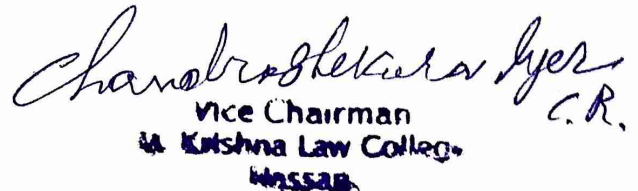 Chandrashekara Iyer
C. R.
Vice Chairman
M. Krishna Law College
Hassan.